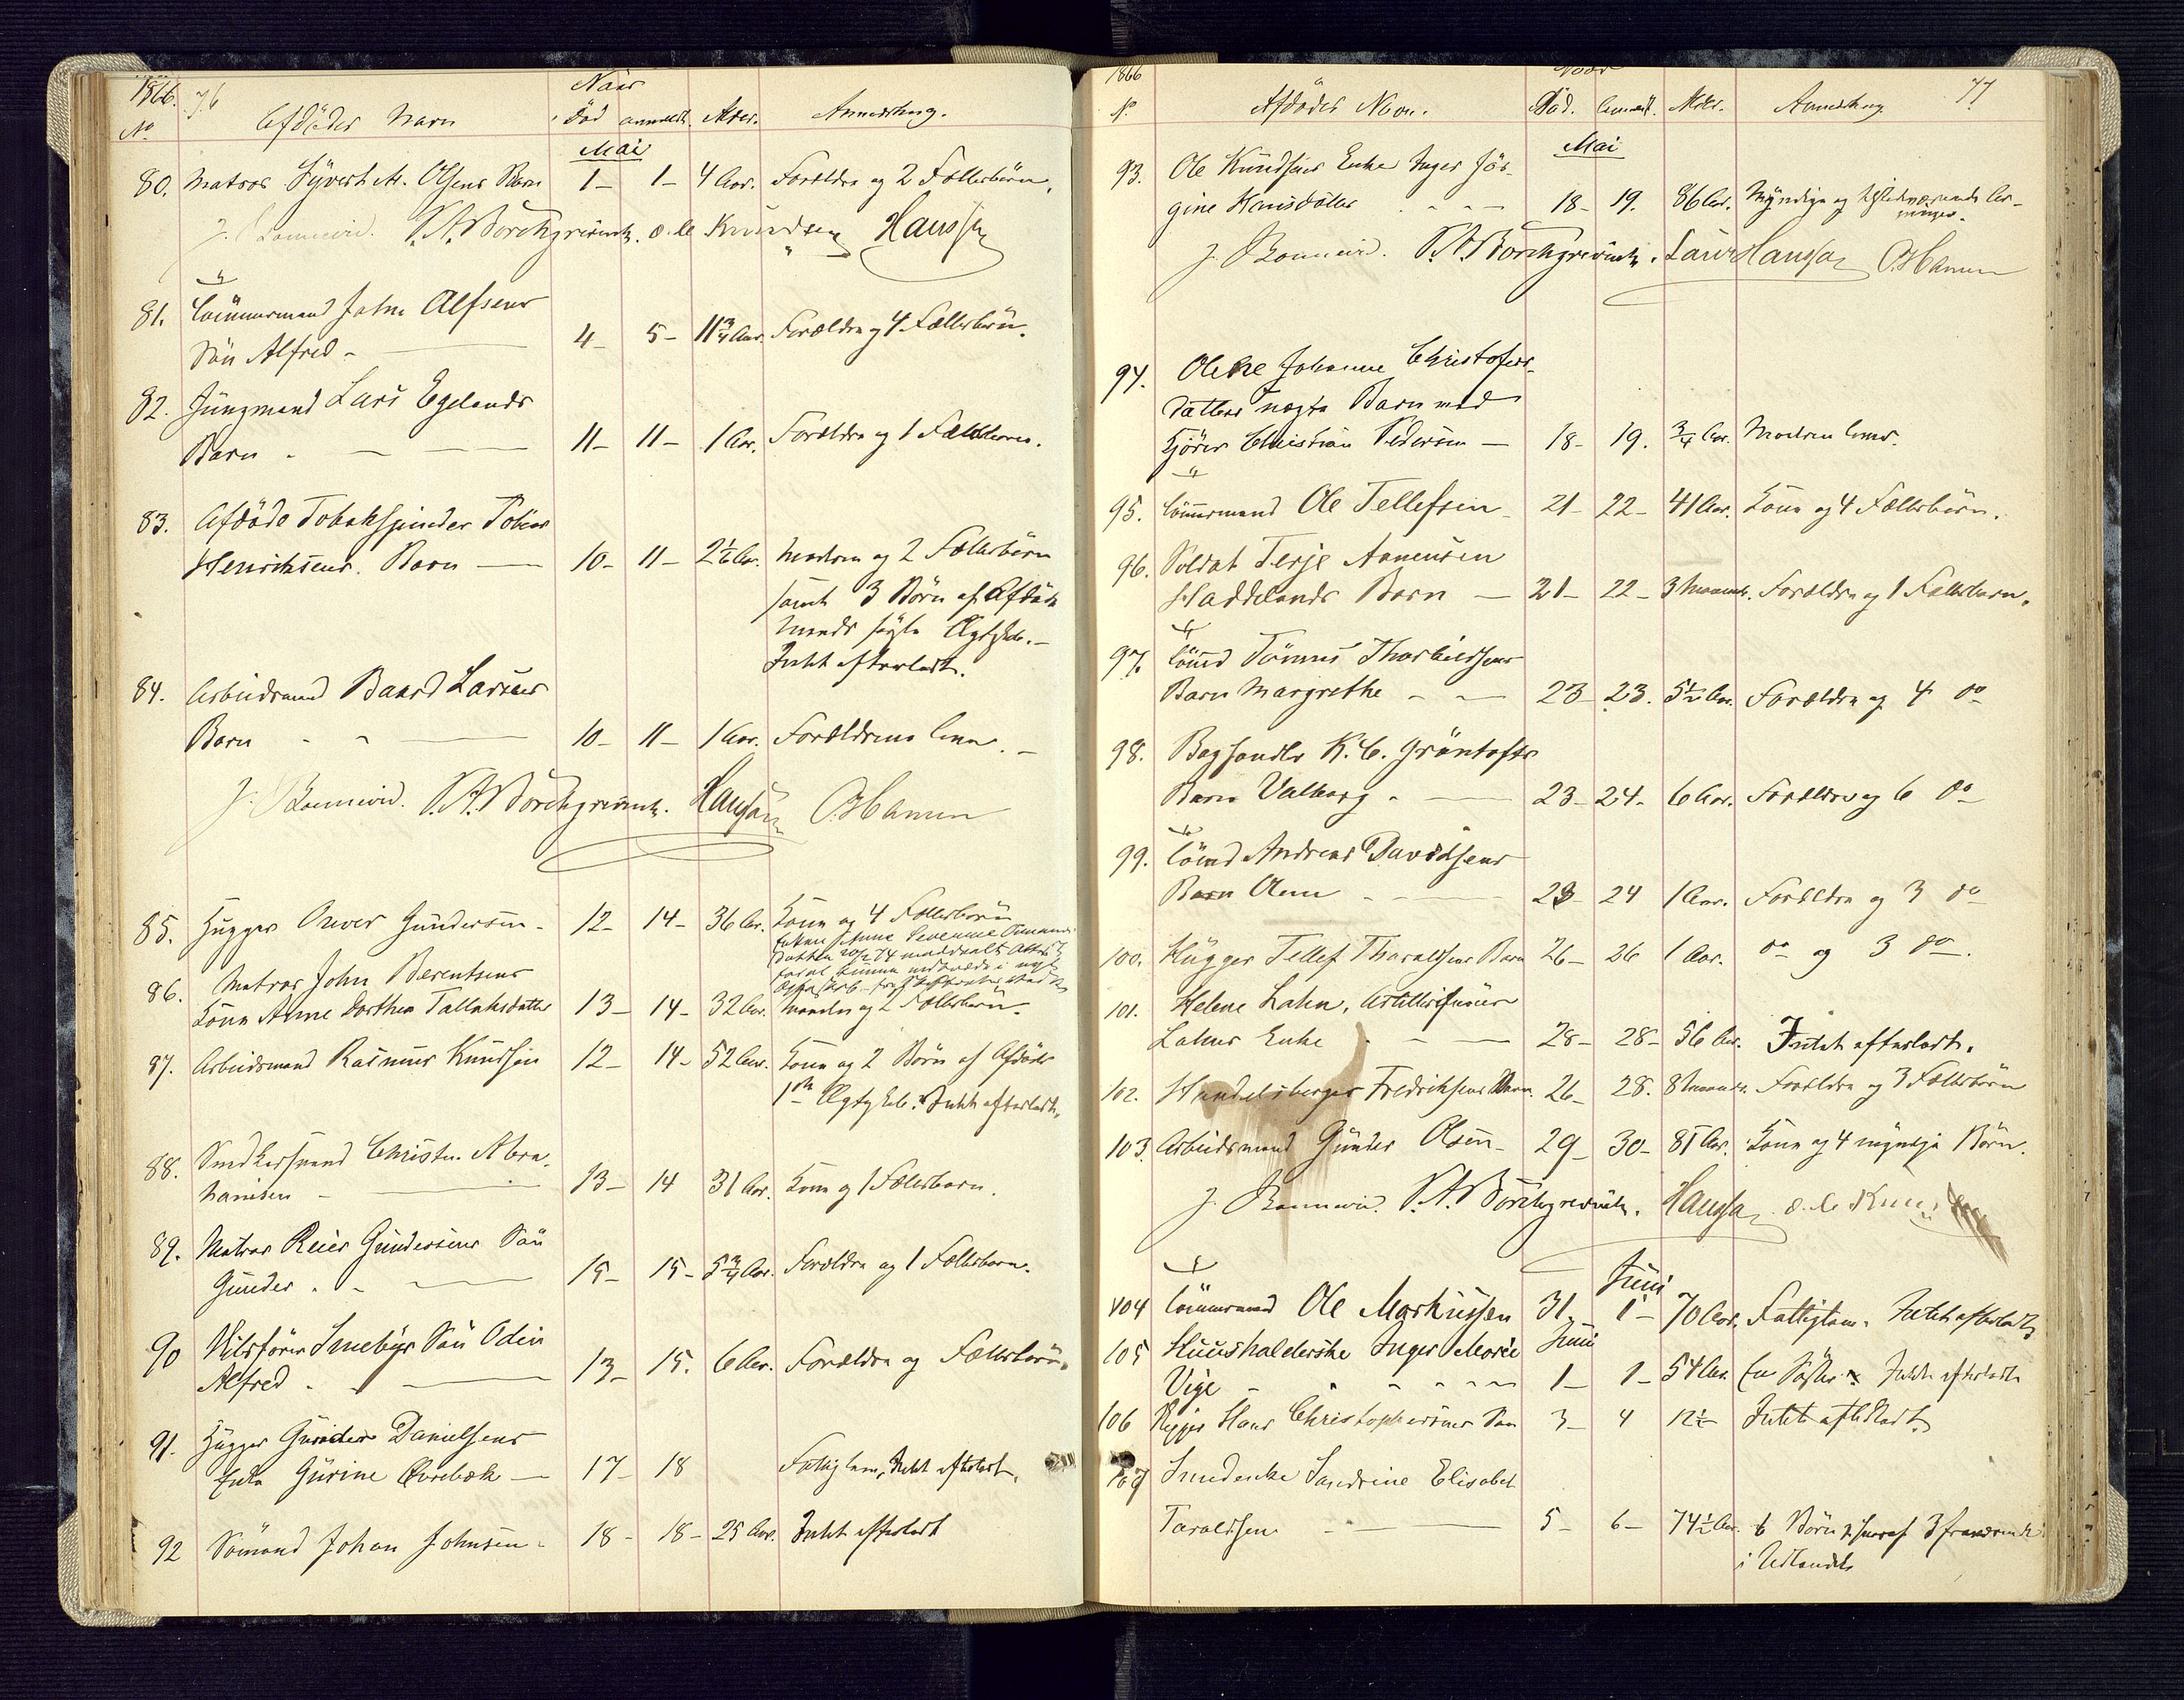 1866. 76
No Afdödes Navn Naar Död anmeldt. Alder. Anmærkning.
Mai
80. Matros Syvert A. Olsens Barn 1- 1- 4 Aar. Forældre og 2 Fællesbörn.
V.A. Borchgrevink. Ole Knudsen Hanssen
81. Tömmermand John Alfsens
Sön Alfred - 4- 5- 11 3/4 Aar. Forældre og 4 Fællesbörn.
82. Jungmand Lars Egelands
Barn - 11- 11- 1 Aar. Forældre og 1 Fællesbarn.
83. Afdöde Tobakspinder Tobias
Henriksens Barn 10- 11- 2 1/2 Aar. Moderen og 2 Fællesbörn
samt 3 Börn af Afdöde
Mands Ægteskab.-
Intet efterladt.
84. Arbeidsmand Baard Larsens
Barn - 10- 11- 1 Aar. Forældrene
V.A. Borchgrevink. Hanssen O. Hansen
85. Hugger Gundersen - 12- 14- 36 Aar. Kone og 4 Fællesbörn
Enken Anne
Datter 20/2 74 meddeelt Attest
i nyt
Ægteskab
86. Matros John Berentsens
Kone Anne Dorthea Tallaksdatter 13- 14- 32 Aar. Manden og 2 Fællesbörn.
87. Arbeidsmand Rasmus Knudsen 12- 14- 52 Aar. Kone og 2 Börn af Afdödes
1ste Ægteskab. Intet efterladt.
88. Smedkersvend Christen Abra-
hamsen - 13- 14 31 Aar. Kone og 1 Fællesbarn.
89. Matros Reier Gundersens Sön
Gunder - 15- 15- 5 3/4 Aar. Forældre og 1 Fællesbarn.
90 Smebys Sön Odin
Alfred - 13- 15. 6 Aar. Forældre og Fællesbörn.
91. Hugger Gunder Danielsens
Enke Gurine Øvrebæk - 17- 18 Fattiglem, Intet efterladt.
92 Sömand Johan Johnsen - 18- 18- 25 Aar. Intet efterladt
1866 77
No. Afdödes Navn. Naar Död. Anmeldt. Alder. Anmærkning
Mai
93. Ole Knudsens Enke Inger Jör-
gine Hansdatter 18- 19. 86 Aar. Myndige og tilstedeværende Ar-
vinger.
V.A. Borchgrevink. Laur Hanssen O. Hansen
94. Olene Johanne Christofers-
datters uægte Barn med
Kjörer Christian Pedersen - 18- 19. 3/4 Aar. Moderen
95. Tömmermand Ole Tellefsen - 21- 22- 41 Aar. Kone og 4 Fællesbörn.
96. Soldat Terje Aanensen
Haddelands Barn - 21- 22- 3 Maaned. Forældre og 1 Fællesbarn.
97. Tömd Tönnes Thorkildsens
Barn Margrethe - 23- 23. 5 1/2 Aar. Forældre og 4 do
98. Boghandler K. C. Gröntofts
Barn Valborg - 23- 24- 6 Aar. Forældre og 6 do
99. Tömd Andreas Davidsens
Barn 23- 24 1 Aar. Forældre og 3 do
100. Hugger Tellef Tharaldsens Barn 26- 26 1 Aar. do og 3 do.
101. Helene Lahn,
Lahns Enke 28- 28- 56 Aar. Intet efterladt.
102. Handelsborger Fredriksens Barn. 26- 28. 8 Maaneder. Forældre og 3 Fællesbörn
103. Arbeidsmand Gunder Olsen - 29- 30- 81 Aar. Kone og 4 myndige Börn.
V.A. Borchgrevink. Hanssen Ole Knudsen
Juni
104 Tömmermand Ole Markussen 31- 1- 70 Aar. Fattiglem. Intet efterladt
105 Huusholderske Inger Marie Juni
Vige 1- 1- 54 Aar. En Söster. Intet efterladt
106 Rigger Hans Christophersens Sön 3- 4 12 1/2 Intet efterladt
107 Smedenke Sandrine Elisabet
Taraldsen 5- 6- 74 1/2 Aar. 6 Börn hvoraf 3 fraværende
i Udlandet